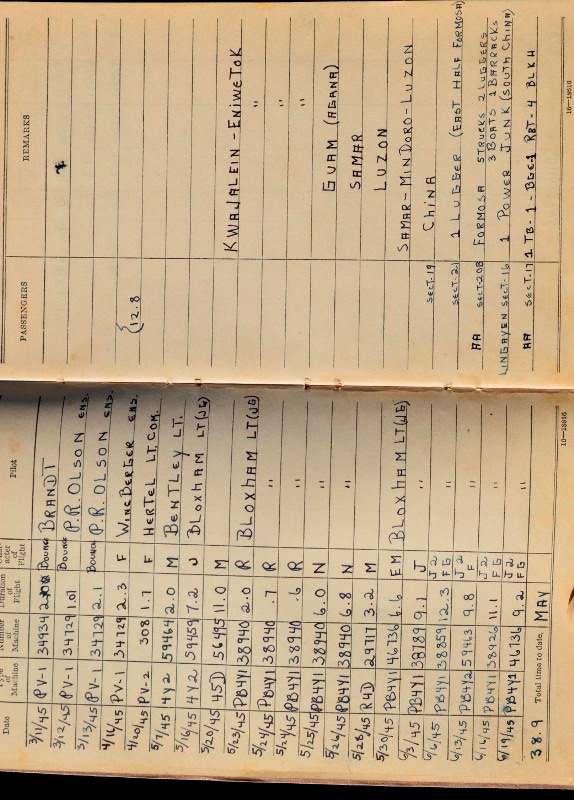 Date Type of Machine Number of Machine Duration of Flight Character of Flight Pilot PASSENGERS REMARKS
3/11/45 PV-1 34934 Bounce BRANDT
3/12/45 PV-1 34729 1.01 Bounce P.R. OLSON ENS.
3/13/45 PV- 34729 2.1 Bounce P.R. OLSON ENS.
4/16/45 PV-1 34729 2.3 F WINEBERGER ENS.
4/20/45 PV-2 308 1.7 F HERTEL LT. COM. {12.8
5/7/45 4Y2 59464 2.0 M BENTLEY LT.
5/16/45 4Y2 59459 7.2 J BLOXHAM LT(JG)
5/20/45 45D 56495 11.0 M
5/23/45 PB4Y1 38940 2.0 R BLOXHAM LT(JG) KWAJALEIN-ENIWETOK
5/24/45 PB4Y1 38940 .7 R " "
5/24/45 PB4Y1 38940 .6 R " "
5/25/45 PB4Y1 38940 6.0 N " "
5/26/45 PB4Y1 38940 6.8 N GUAM (AGANA)
5/28/45 R4D 29717 3.2 M SAMAR
5/30/45 PB4Y1 46736 6.6 EM BLOXHAM LT(JG) LUZON
6/3/45 PB4Y1 38789 9.1 J " SAMAR-MINDORO-LUZON
6/6/45 PB4Y1 38859 12.3 J2 FG " SECT-19 CHINA
6/13/45 PB4Y2 59463 9.8 J2 F " SECT-21 1 LUGGER (EAST HALF FORMOSA)
6/16/45 PB4Y1 38926 11.1 J2 FG " AA SECT-20B FORMOSA 5 TRUCKS 2 LUGGERS 3 BOATS 1 BARRACKS
6/19/45 PB4Y1 46736 9.2 J2 FG " LINGAYEN SECT-16 1 POWER JUNK (SOUTH CHINA)
AA SECT-17 1 TB-1- RBT-4 BLKH
38.9 Total time to date, MAY
16-18616 16-18616